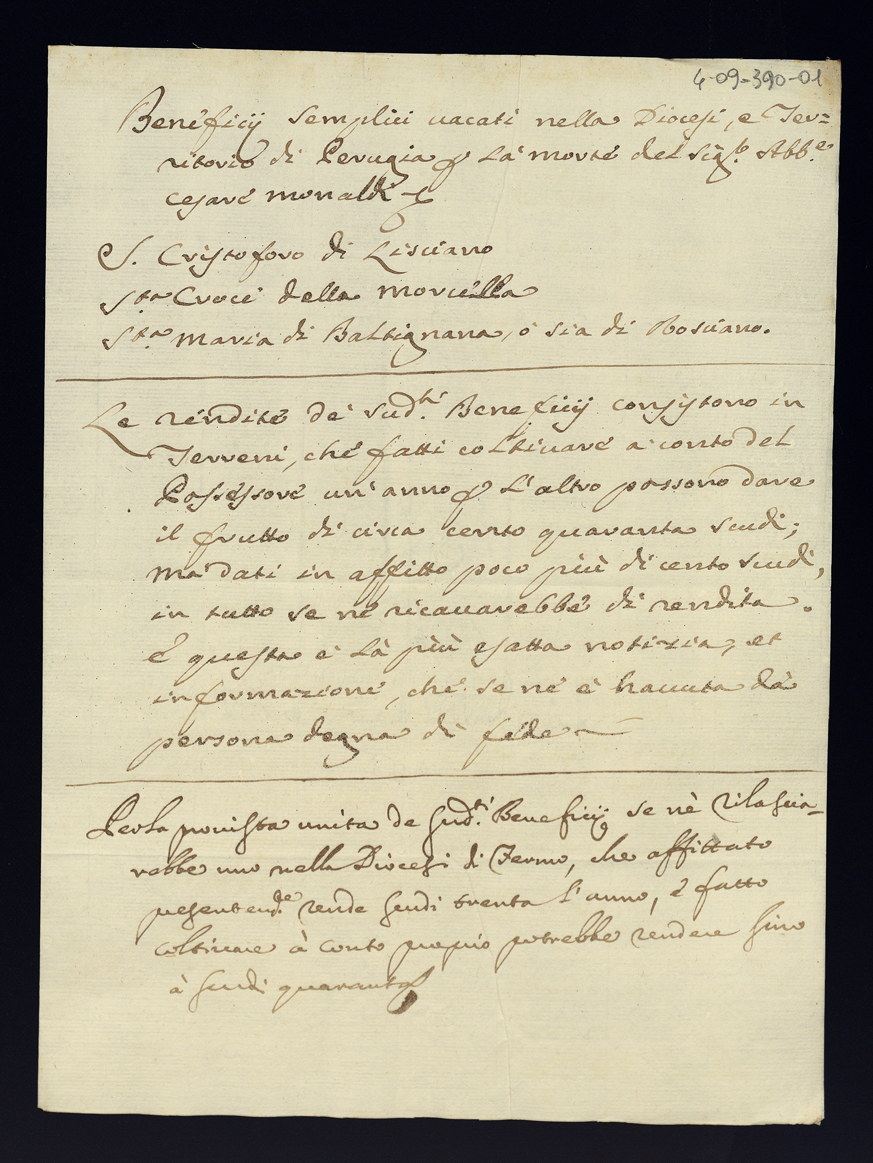 4-09-390-01
Beneficij semplici vacati nella Diocesi, e Ter=
ritorio di Perugia p la morte del Sig.r Abb.e
Cesare Monaldi
S. Cristoforo di Lisciano
S.ta Croce della Morcella
S.ta Maria di Battignana, ò sia di Rosciano.
Le rendite de' sud.ti Beneficij consistono in
Terreni, che fatti coltivare a conto del
Possessore un' anno p l'altro possono dare
il frutto di circa cento quaranta scudi;
ma dati in affitto poco più di cento scudi,
in tutto se ne ricavarebbe di rendita.
E questa è la più esatta notizia, et
informazione, che se ne è havuta da
persona degna di fede
Per la provista unita de sud.ti Beneficij se nè rilascia=
rebbe uno nella Diocesi di Fermo, che affittato
presentem.te rende scudi trenta l'anno, è fatto
coltivare à conto proprio potrebbe rendere sino
à scudi quaranta